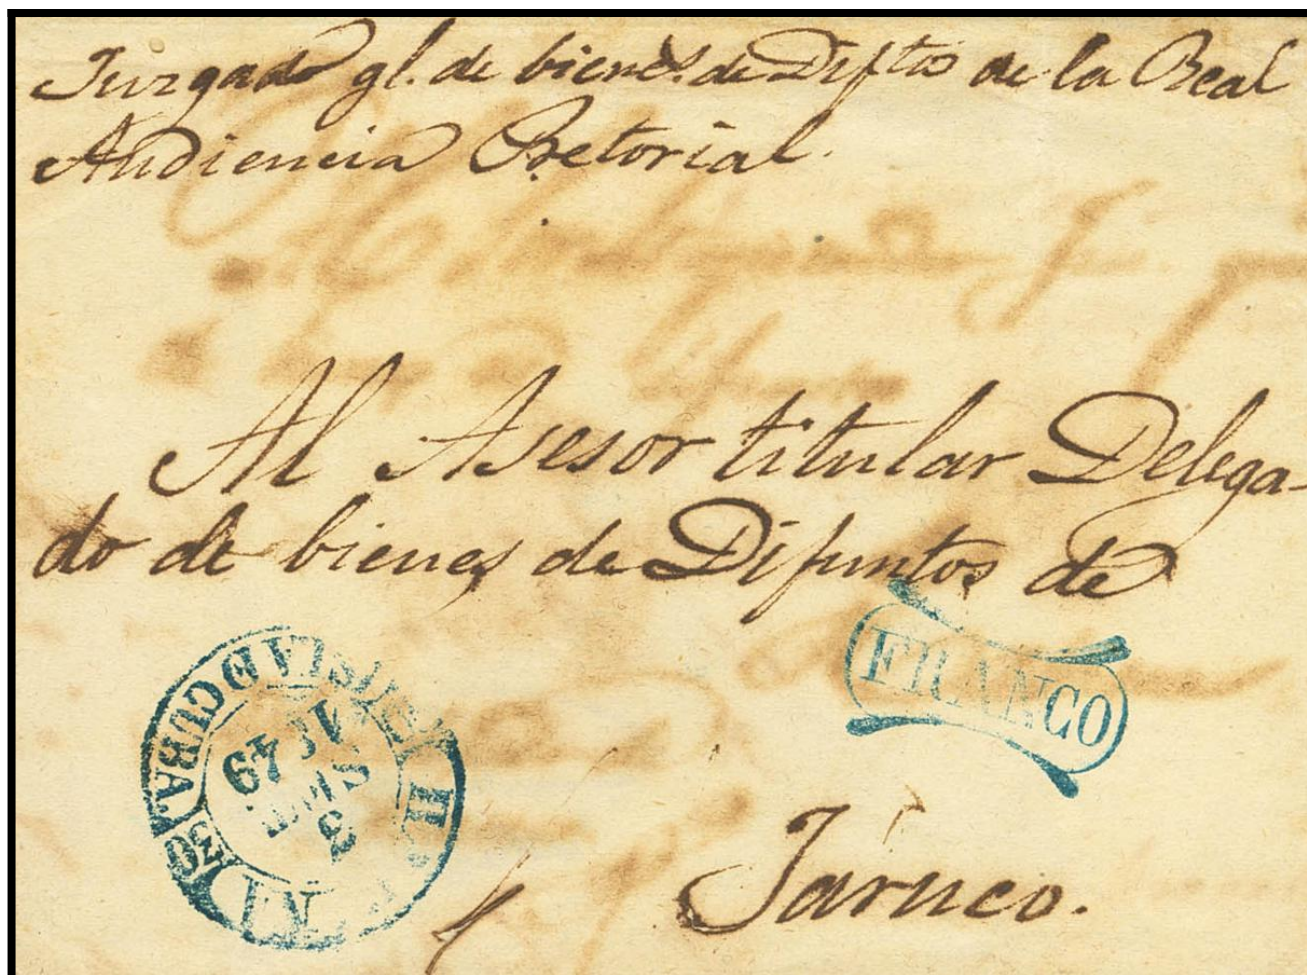 Juzgado gl. de bienes. de Diftos de la Real
Audiencia Pretorial.
Al Asesor titular Delega-
do de bienes de Difuntos de
FRANCO
ISLA D CUBA
30
3
1849
Jaruco.